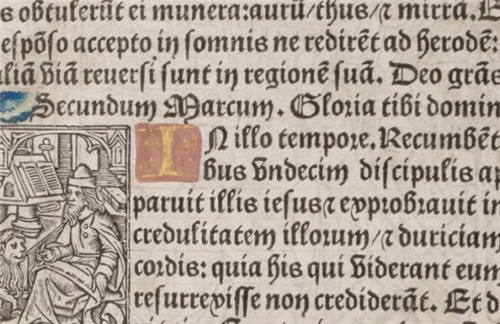 s obtulerūt ei munera: aurū/thus/⁊ mirrā. E
espōso accepto in somnis ne redirēt ad herodē:
aliā viā reuersi sunt in regionē suā. Deo grāt
Secundum Marcum. Gloria tibi domin
IN illo tempore. Recumbēt
bus vndecim discipulis ap
paruit illis iesus ⁊ exprobrauit in
credulitatem illorum/⁊ duriciam
cordis: quia his qui viderant eum
resurrexisse non crediderāt. Et d